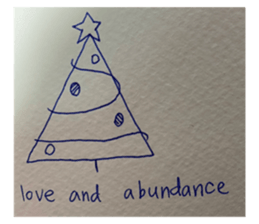 love and abundance